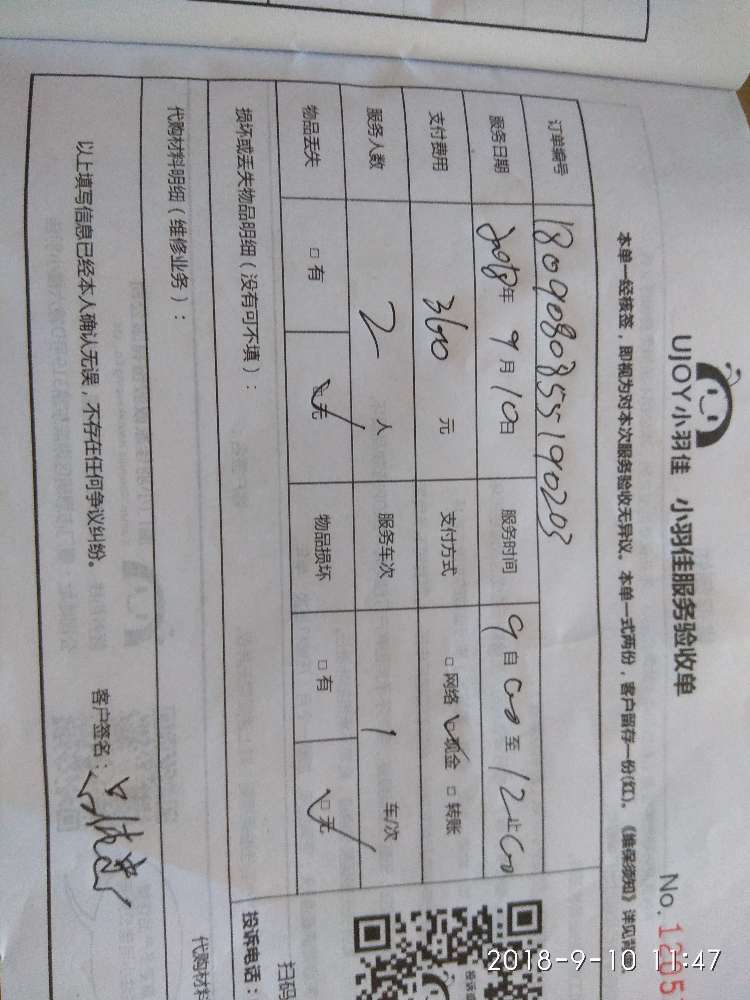 UJOY小羽佳 小羽佳服务验收单
No. 1205
本单一经核签，即视为对本次服务验收无异议。本单一式两份，客户留存一份(红)。《维保须知》详见背
订单编号 1809080855190203
服务日期 2018年 9月 10日 服务时间 9自 00至 12止00
支付费用 360 元 支付方式 □网络 ☑现金 □转账
服务人数 2 人 服务车次 1 车/次
物品丢失 □有 ☑无 物品损坏 □有 ☑无
损坏或丢失物品明细（没有可不填）：
代购材料明细（维修业务）：
代购材料
以上填写信息已经本人确认无误，不存在任何争议纠纷。 客户签名：
扫码
投诉电话：
2018-9-10 11:47